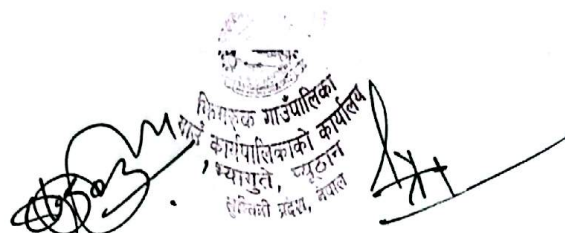 झिमरुक गाउँपालिका
गाउँ कार्यपालिकाको कार्यालय
भ्यागुते, प्यूठान
लुम्बिनी प्रदेश, नेपाल